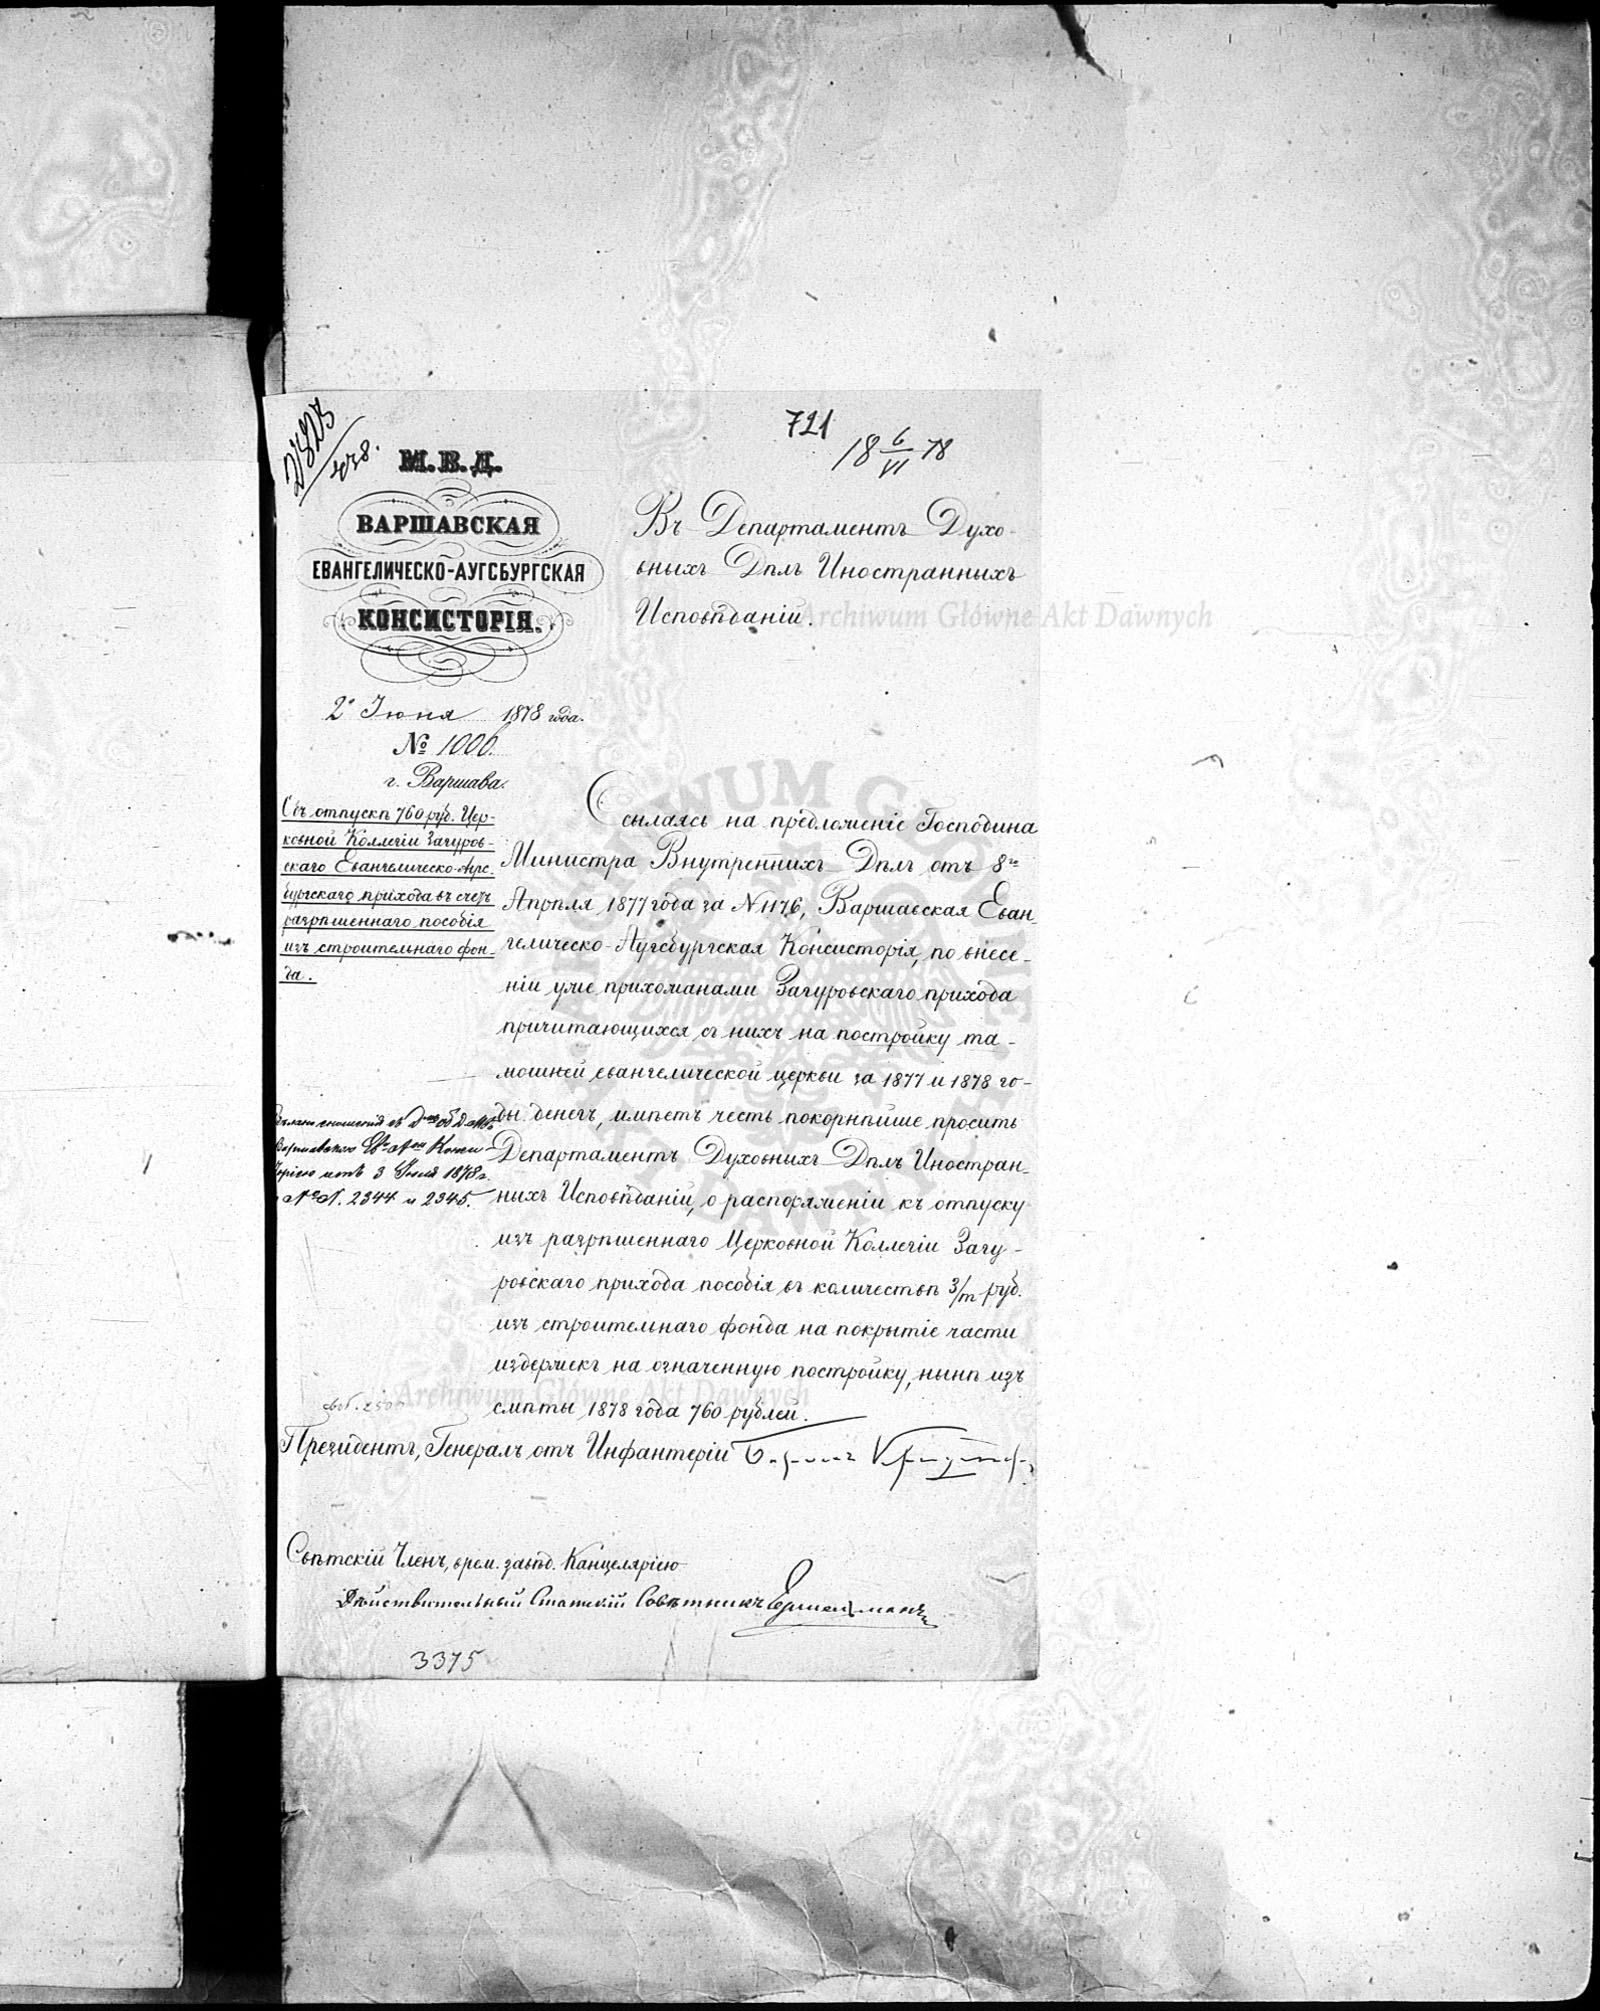 721
18 6/VI 78
М.В.Д.
ВАРШАВСКАЯ
ЕВАНГЕЛИЧЕСКО-АУГСБУРГСКАЯ
КОНСИСТОРІЯ.
2 Іюня 1878 года.
№ 1006.
г. Варшава.
Объ отпускѣ 760 руб. Цер-
ковной Коллегіи Загуров-
скаго Евангелическо-Аугс-
бургскаго прихода въ счетъ
разрѣшеннаго пособія
изъ строительнаго фон-
да.
Въ Департаментъ Духо-
вныхъ Дѣлъ Иностранныхъ
Исповѣданій.
Ссылаясь на предложеніе Господина
Министра Внутреннихъ Дѣлъ отъ 8го
Апрѣля 1877 года за № 1176, Варшавская Еван-
гелическо-Аугсбургская Консисторія, по внесе-
ніи уже прихожанами Загуровскаго прихода
причитающихся съ нихъ на постройку та-
мошней евангелической церкви за 1877 и 1878 го-
ды денегъ, имѣетъ честь покорнѣйше просить
Департаментъ Духовныхъ Дѣлъ Иностран-
ныхъ Исповѣданій, о распоряженіи къ отпуску
изъ разрѣшеннаго Церковной Коллегіи Загу-
ровскаго прихода пособія въ количествѣ 3/m руб.
изъ строительнаго фонда на покрытіе части
издержекъ на означенную постройку, нынѣ изъ
смѣты 1878 года 760 рублей.
3 Іюля 1878 г.
№№. 2344 и 2345.
Президентъ, Генералъ отъ Инфантеріи
Свѣтскій Членъ, врем. завѣд. Канцеляріею
Дѣйствительный Статскій Совѣтникъ
3375
Archiwum Główne Akt Dawnych
Archiwum Główne Akt Dawnych
ARCHIWUM GŁÓWNE AKT DAWNYCH